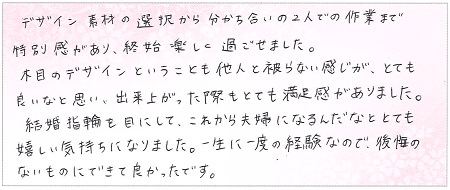 デザイン 素材の選択から分かち合いの2人での作業まで
特別感があり、終始楽しく過ごせました。
木目のデザインということも他人と被らない感じが、とても
良いなと思い、出来上がった際もとても満足感がありました。
結婚指輪を目にして、これから夫婦になるんだなととても
嬉しい気持ちになりました。一生に一度の経験なので、後悔の
ないものにできて良かったです。